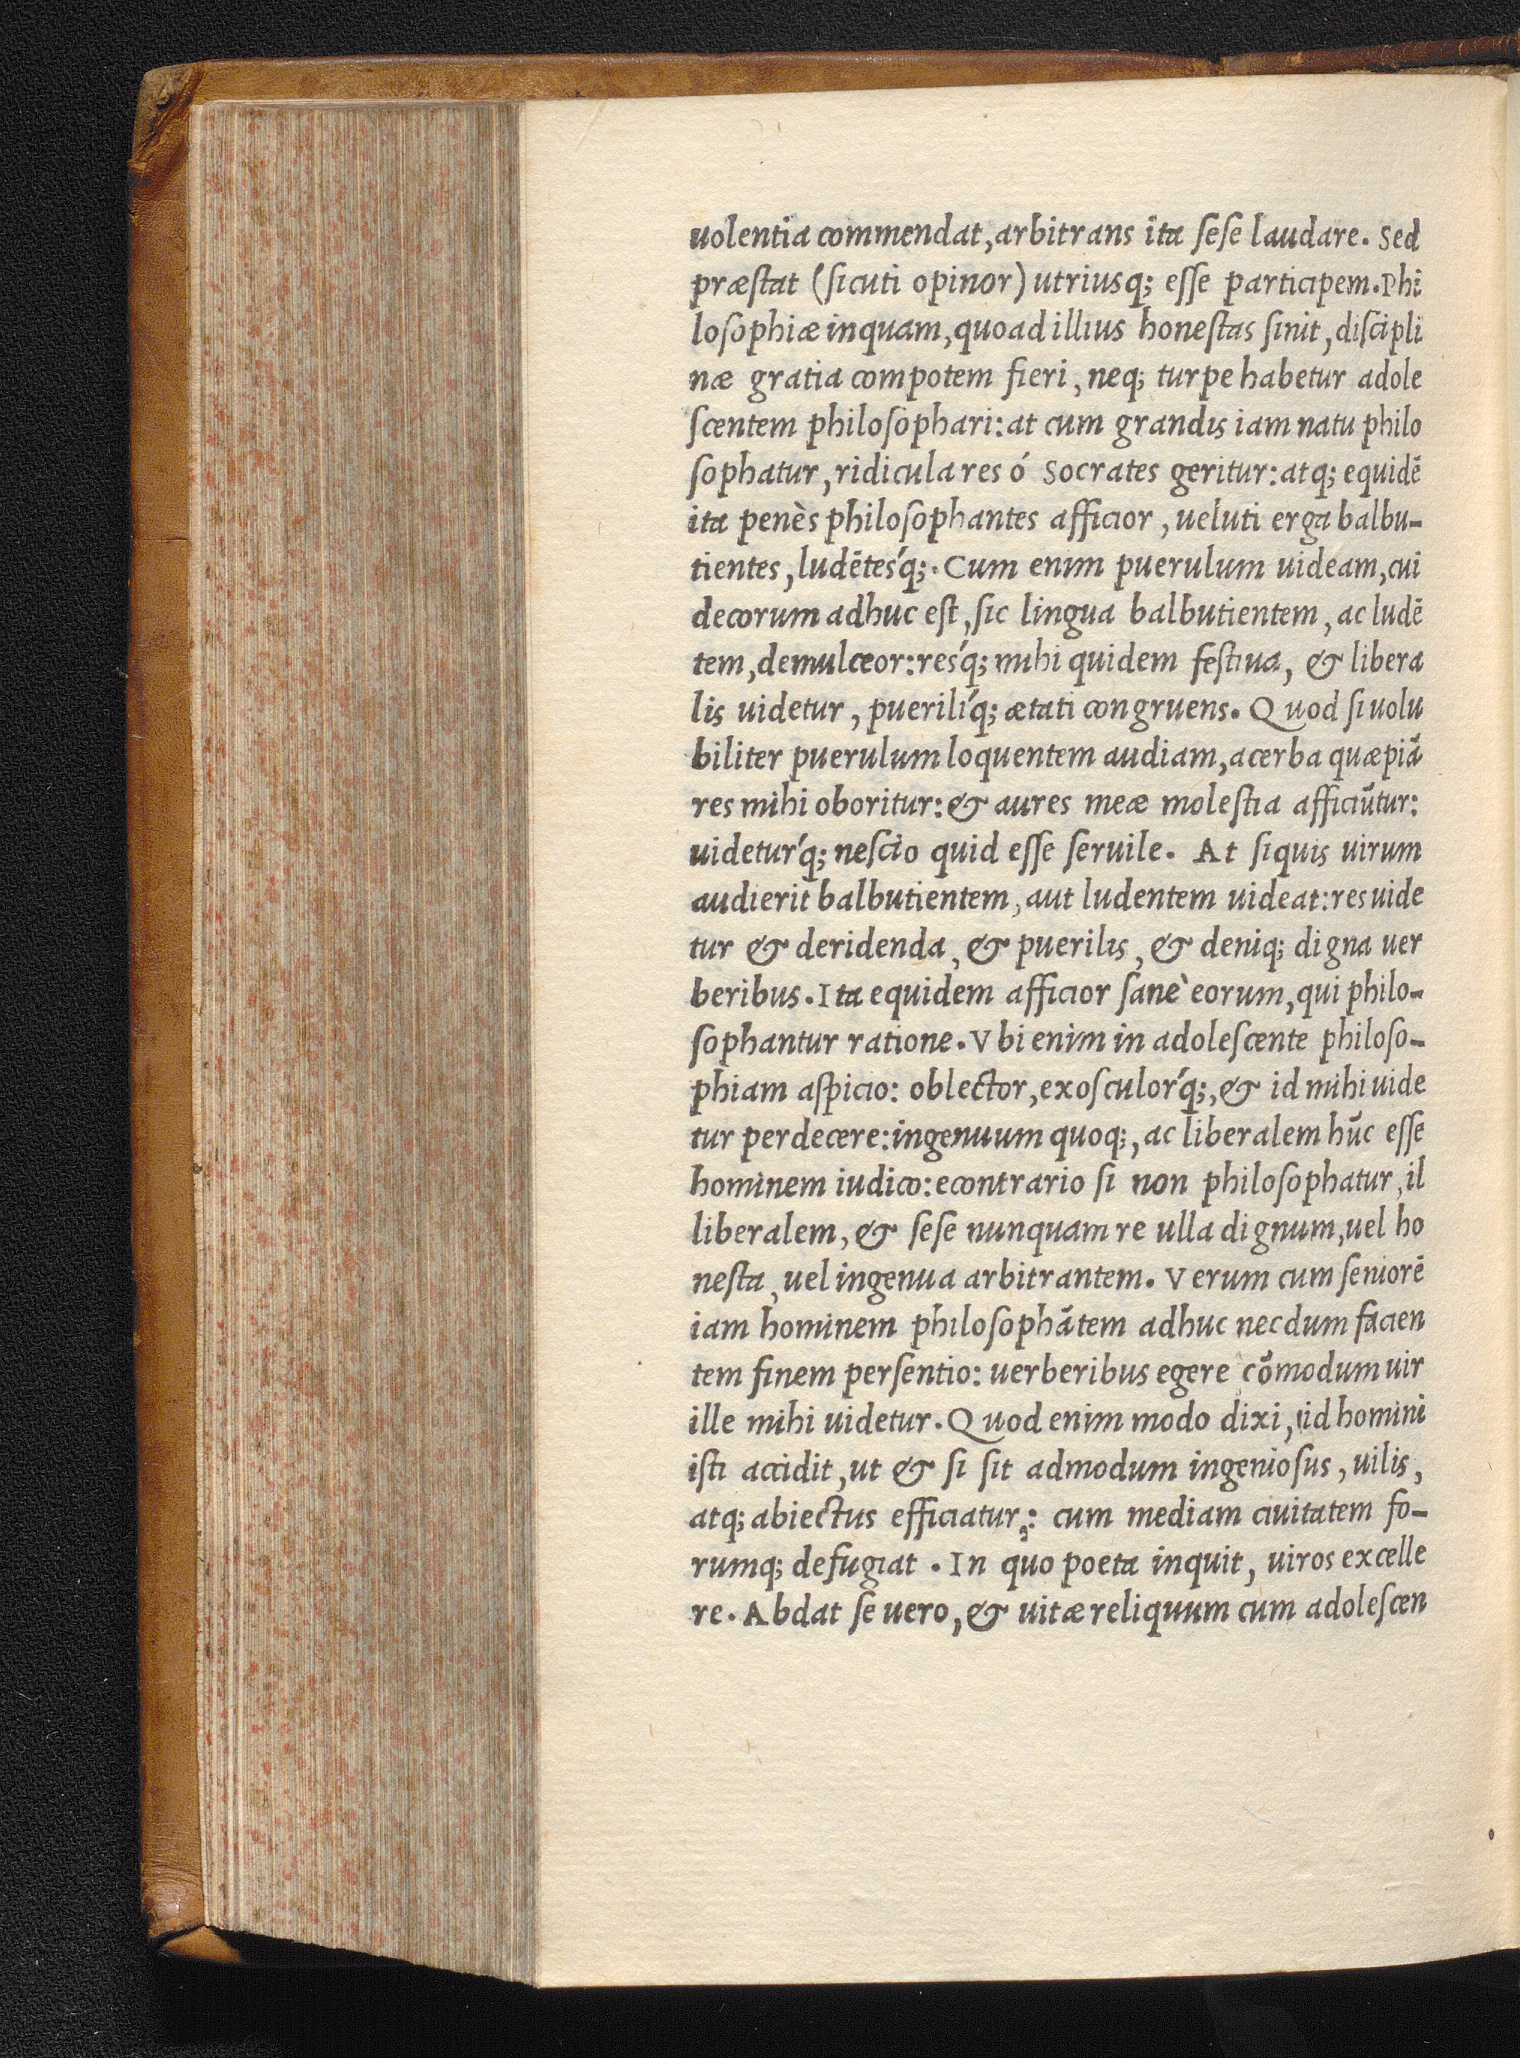 uolentia commendat, arbitrans ita sese laudare. Sed
præstat (sicuti opinor) utriusq; esse participem. Phi
losophiæ inquam, quoad illius honestas sinit, discipli
næ gratia compotem fieri, neq; turpe habetur adole
scentem philosophari: at cum grandis iam natu philo
sophatur, ridicula res ó Socrates geritur: atq; equidē
ita penès philosophantes afficior, ueluti erga balbu-
tientes, ludētesq́;. Cum enim puerulum uideam, cui
decorum adhuc est, sic lingua balbutientem, ac ludē
tem, demulceor: resq́; mihi quidem festiua, & libera
lis uidetur, puerilíq; ætati congruens. Quod si uolu
biliter puerulum loquentem audiam, acerba quæpiā
res mihi oboritur: & aures meæ molestia afficiūtur:
uideturq́; nescio quid esse seruile. At siquis uirum
audierit balbutientem, aut ludentem uideat: res uide
tur & deridenda, & puerilis, & deniq; digna uer
beribus. Ita equidem afficior sanè eorum, qui philo-
sophantur ratione. Vbi enim in adolescente philoso-
phiam aspicio: oblector, exosculorq́;, & id mihi uide
tur perdecere: ingenuum quoq;, ac liberalem hūc esse
hominem iudico: econtrario si non philosophatur, il
liberalem, & sese nunquam re ulla dignum, uel ho
nesta, uel ingenua arbitrantem. Verum cum seniorē
iam hominem philosophātem adhuc necdum facien
tem finem persentio: uerberibus egere cōmodum uir
ille mihi uidetur. Quod enim modo dixi, id homini
isti accidit, ut & si sit admodum ingeniosus, uilis,
atq; abiectus efficiatur: cum mediam ciuitatem fo-
rumq; defugiat. In quo poeta inquit, uiros excelle
re. Abdat se uero, & uitæ reliquum cum adolescen